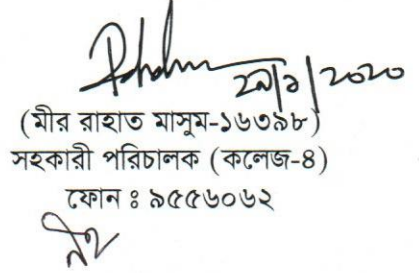 ২৯/৯/২০২০
(মীর রাহাত মাসুম-১৬৩৯৮)
সহকারী পরিচালক (কলেজ-৪)
ফোন ঃ ৯৫৫৬০৬২